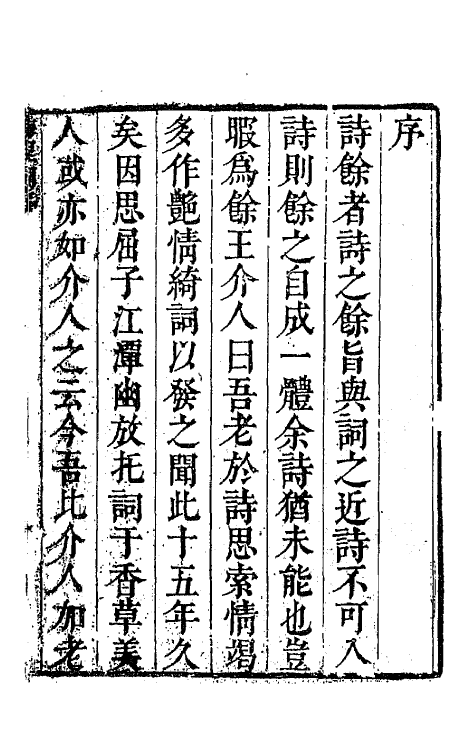 序
詩餘者詩之餘旨與詞之近詩不可入
詩則餘之自成一體余詩猶未能也豈
暇爲餘王介人曰吾老於詩思索情竭
多作艷情綺詞以發之聞此十五年久
矣因思屈子江潭幽放托詞于香草美
人或亦如介人之云今吾比介人加老